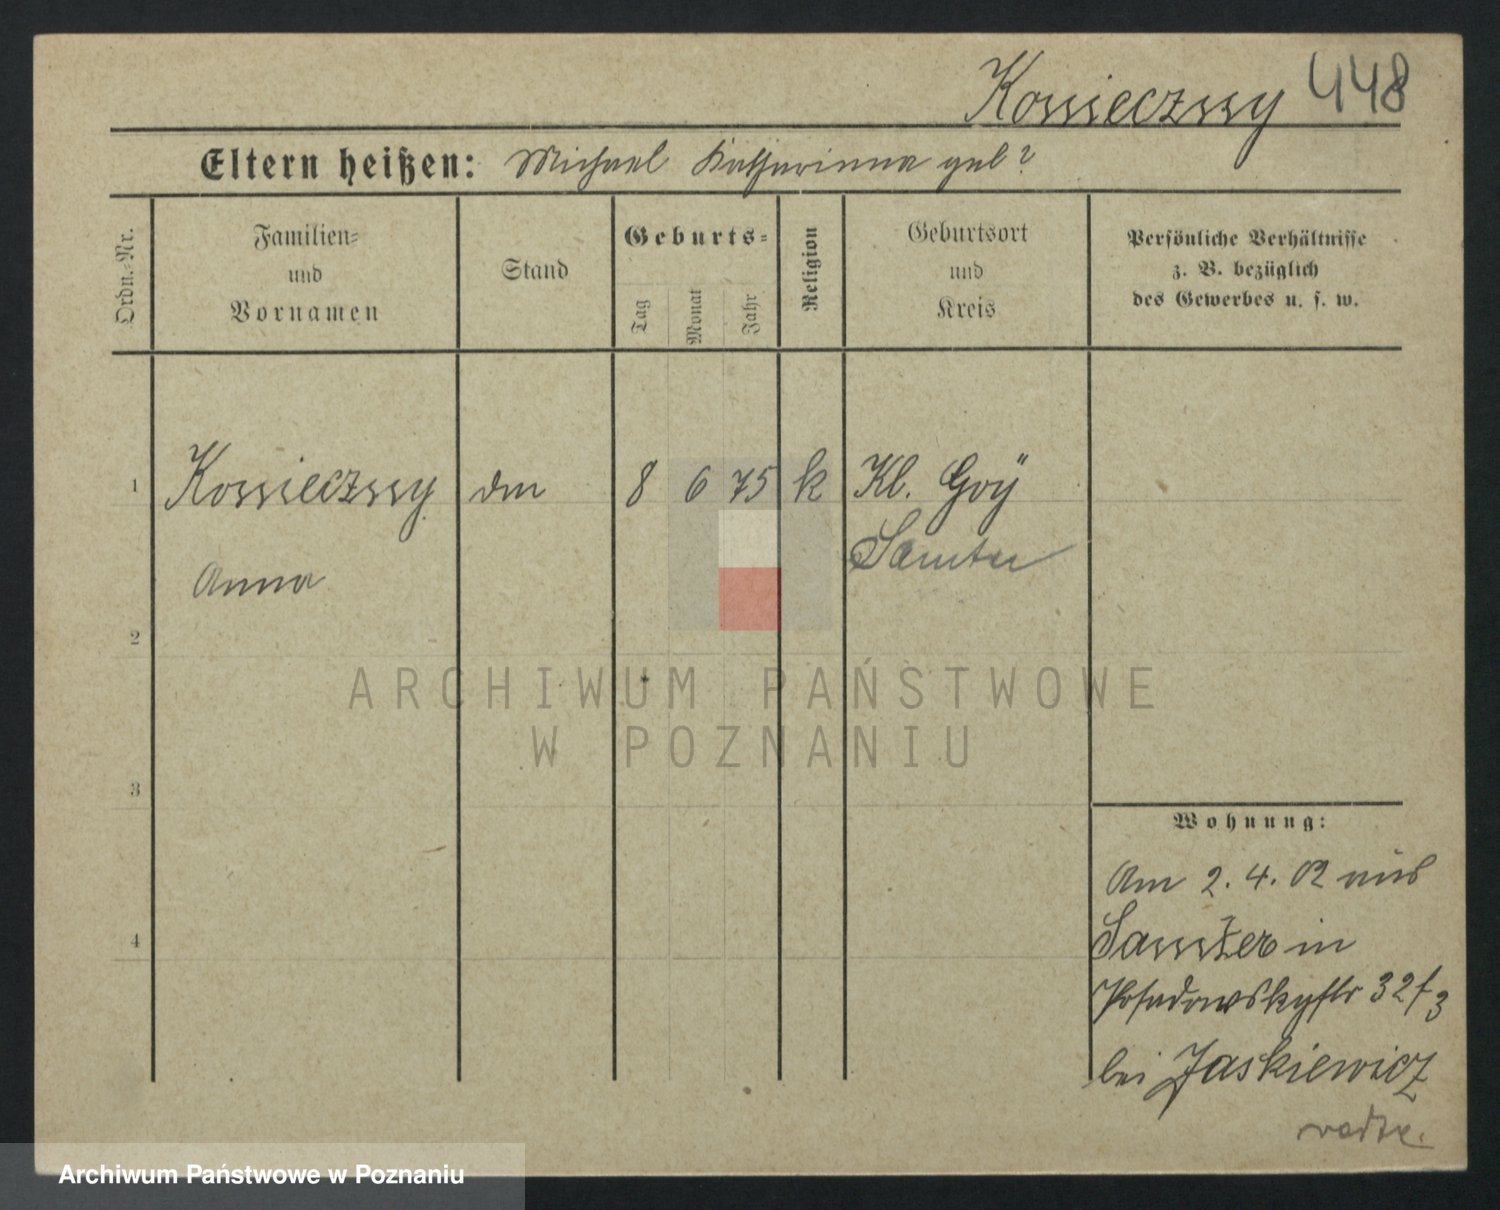 Konieczny 448
Eltern heißen: Michael Katharinna geb?
Ordn.-Nr.
Familien-
und
Vornamen
Stand
Geburts-
Tag
Monat
Jahr
Religion
Geburtsort
und
Kreis
Persönliche Verhältnisse
z. B. bezüglich
des Gewerbes u. s. w.
1 Konieczny 8 6 75 k Kl. Goÿ
Samter
Anna
2
3
4
ARCHIWUM PAŃSTWOWE
W POZNANIU
Wohnung:
Am 2. 4. 02 aus
Samter in
Posadowskystr 32/3
bei Jaskiewicz
Archiwum Państwowe w Poznaniu